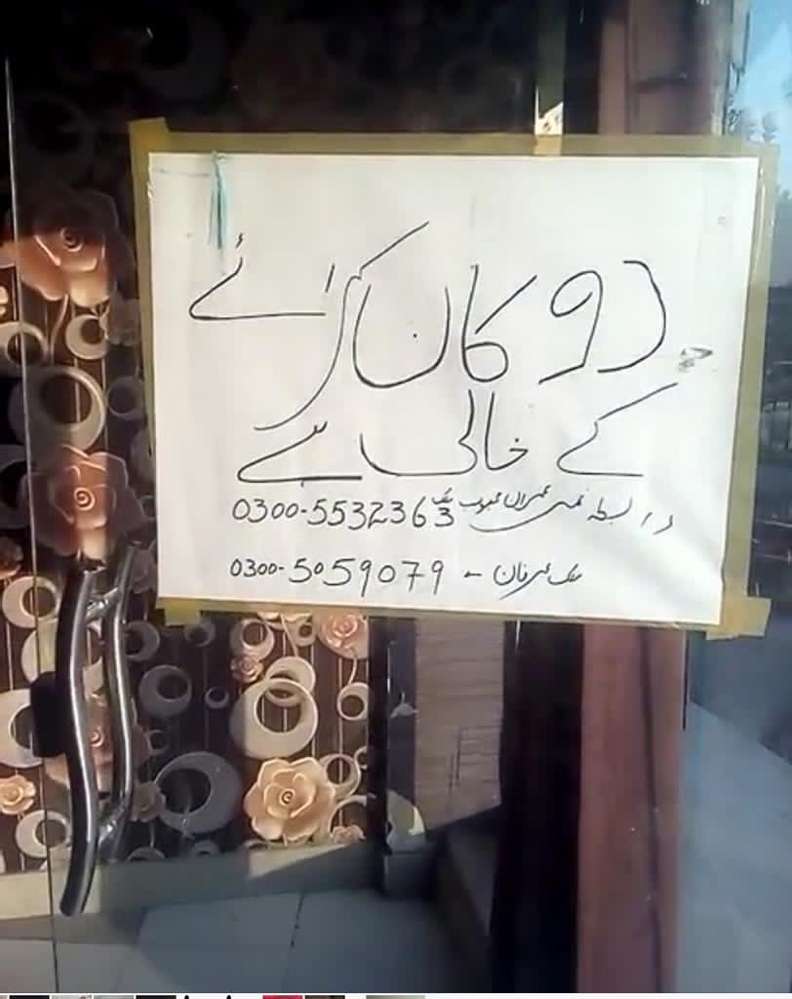 دوکان کرائے
کے خالی ہے
رابطہ نمبر عمران محبوب ملک 0300-5532363
ملک عرفان - 0300-5059079